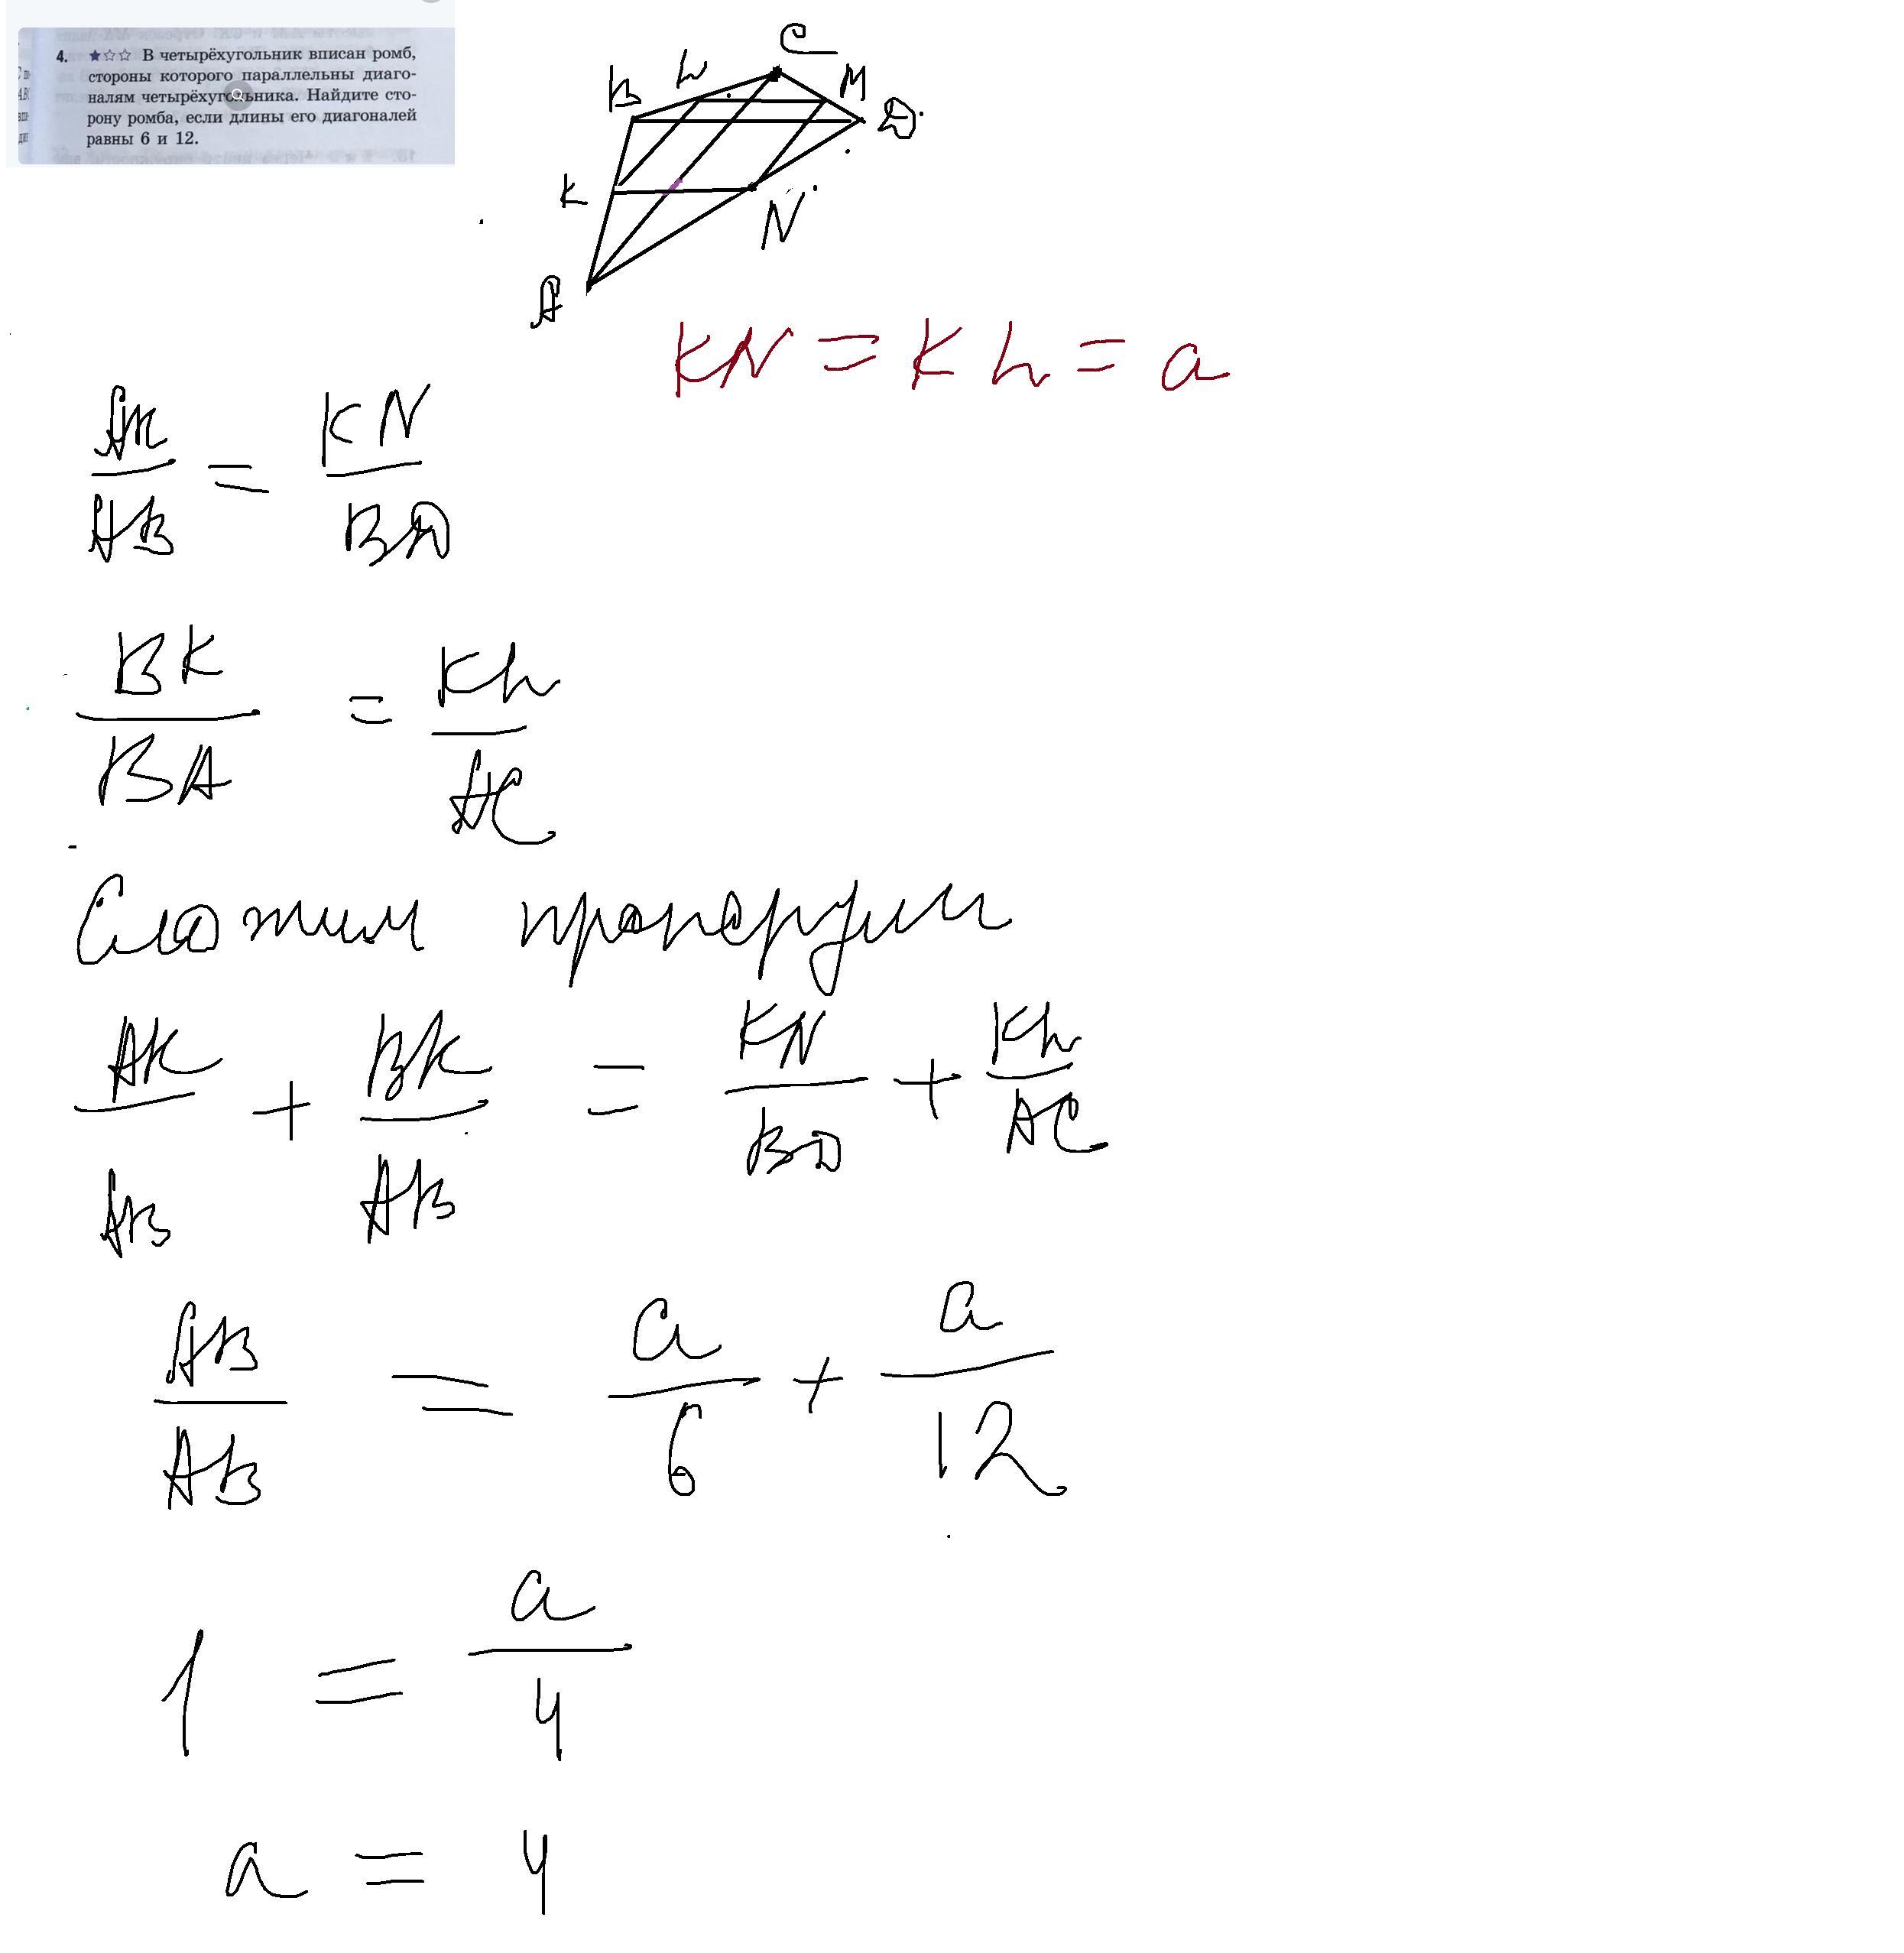 4. ★☆☆ В четырёхугольник вписан ромб,
стороны которого параллельны диаго-
налям четырёхугольника. Найдите сто-
рону ромба, если длины его диагоналей
равны 6 и 12.
C
B L M D
K
N
A
KN = KL = a
AK/AB = KN/BD
BK/BA = KL/AC
Сложим пропорции
AK/AB + BK/AB = KN/BD + KL/AC
AB/AB = a/6 + a/12
1 = a/4
a = 4